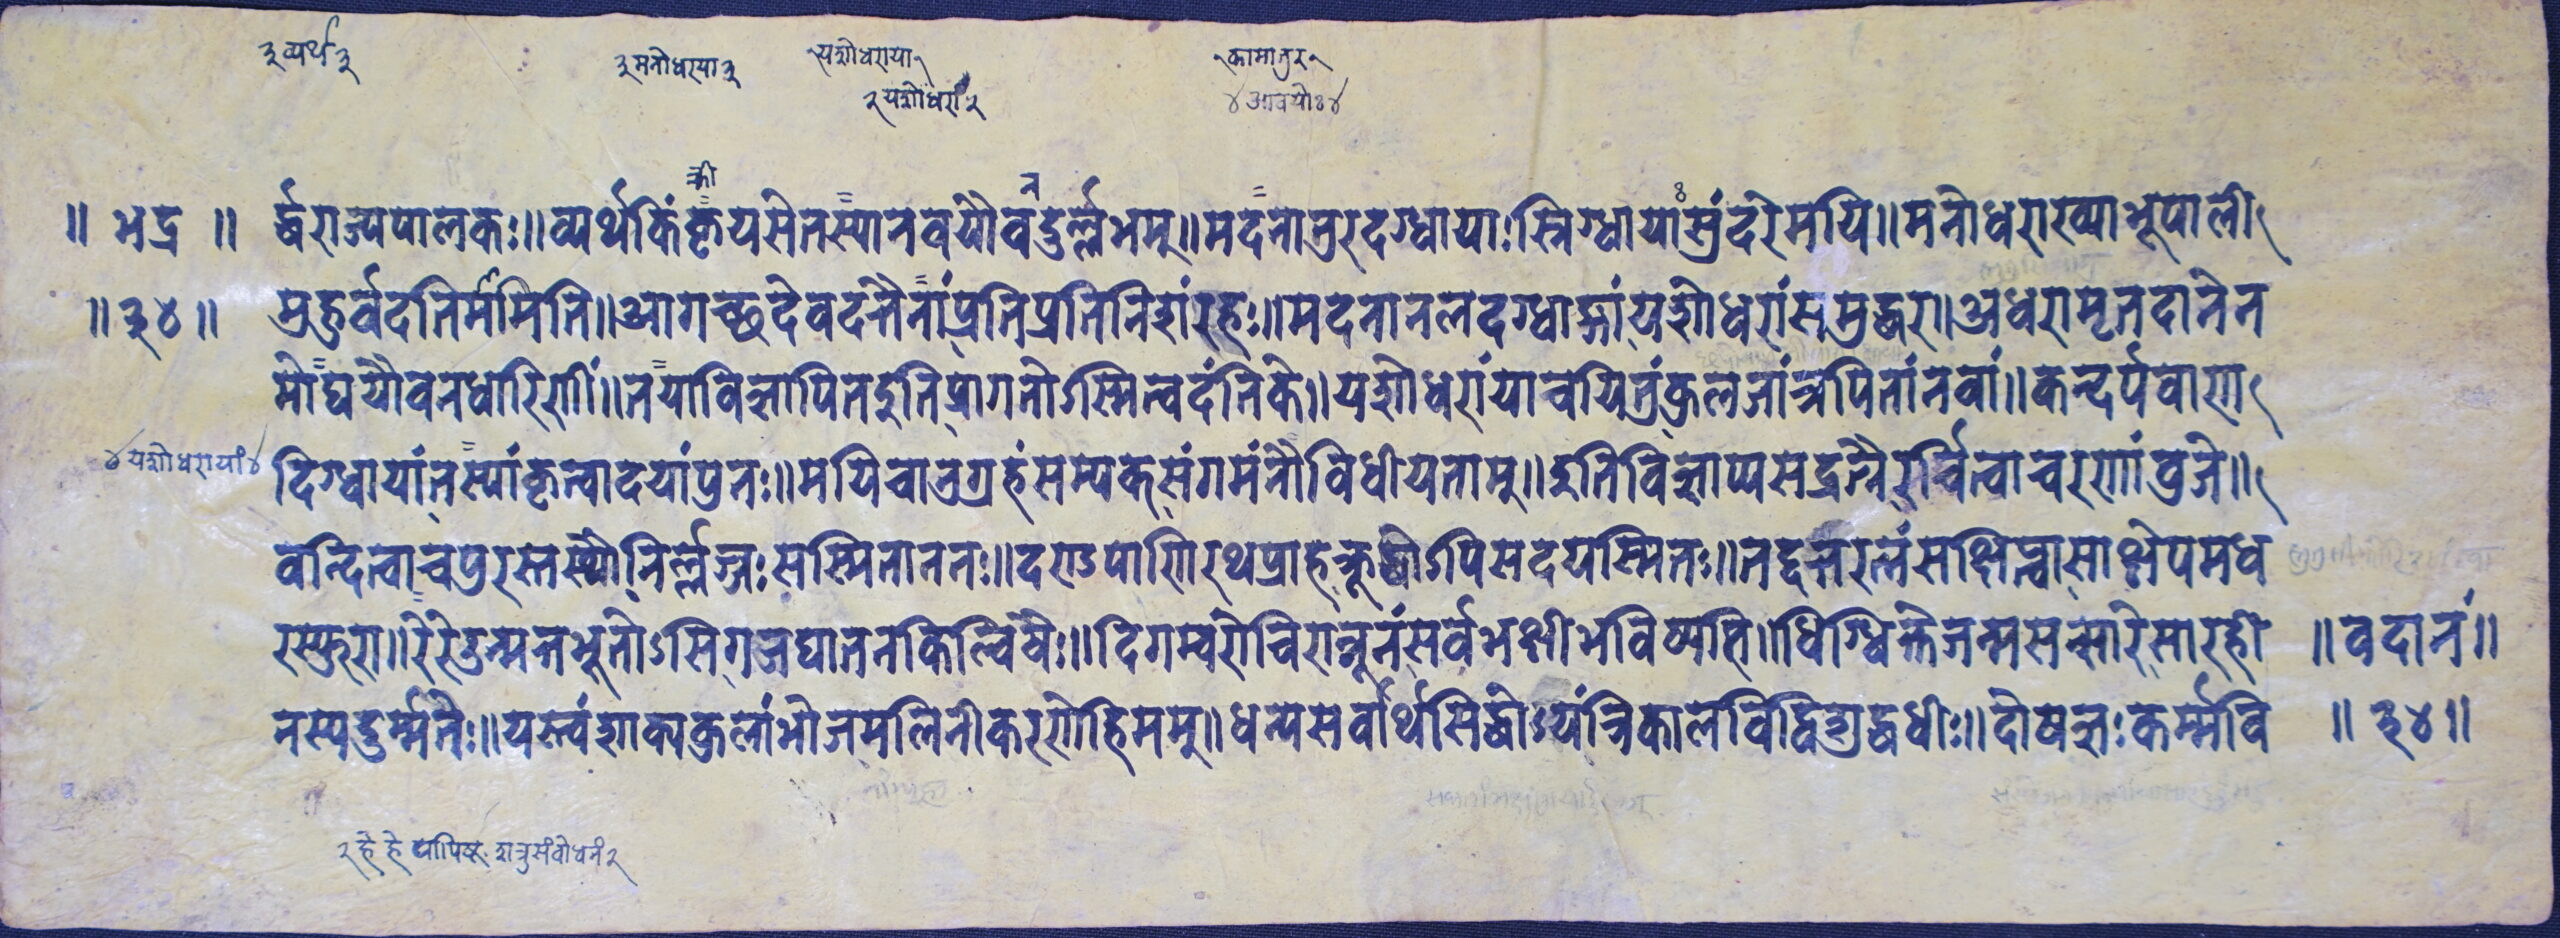 ३ व्यर्थ ३
३ मनोधरया ३
१ यशोधराया १
१ कामातुर १
२ यशोधरां २
४ आवयोः ४
॥ भद्र ॥ र्द्धराज्यपालकः॥ व्यर्थं किं कृयसे तस्या नवयौवदुर्ल्लभम्॥ मदनातुरदग्धायाः स्निग्धाया सुंदरे मयि॥ मनोधराख्या भूपाली
॥ ३४ ॥ मुहुर्वदति र्ममिति॥ आगच्छ देवदत्तैनां प्रति प्रतिनिशं रहः॥ मदनानलदग्धाङ्गां यशोधरां समुद्धर॥ अधरामृतदानेन
मोघयौवनधारिणीं॥ तया विज्ञापित इति प्रागतोऽस्मि त्वदंतिके॥ यशोधरां याचयितुं कुलजां त्रपितां नवां॥ कन्दर्पवाणा
४ यशोधरायां ४
दिग्धायां तस्यां कृत्वा दयां पुनः॥ मयि चानुग्रहं सम्यक् संगमं नौ विधीयताम्॥ इति विज्ञाप्य सद्रत्नैरर्चित्वा चरणांवुजे॥
वन्दित्वा च पुरस्तस्थौ निर्ल्लज्जः सस्मिताननः॥ दण्डपाणिरथ प्राह क्रूद्धोऽपि सदयस्मितः॥ तद्दत्तरत्नं संक्षिप्त्वा साक्षेपमध
रस्फुर॥ रे रे उन्मत्तभूतोऽसि गजघातनकिल्विषैः॥ दिगम्वरो चिरान्नूनं सर्वभक्षी भविष्यसि॥ धिग्धिक्ते जन्म सन्सारे सारही ॥ वदानं॥
नस्य दुर्म्मतेः॥ यस्त्वं शाक्यकुलांभोजमलिनीकरणे हिमम्॥ धन्य सर्वार्थसिद्धोऽयं त्रिकालविद्विशुद्धधीः॥ दोषज्ञः कर्म्मवि ॥ ३४ ॥
२ हे हे पापिष्ठ शत्रुसंवोधनं २